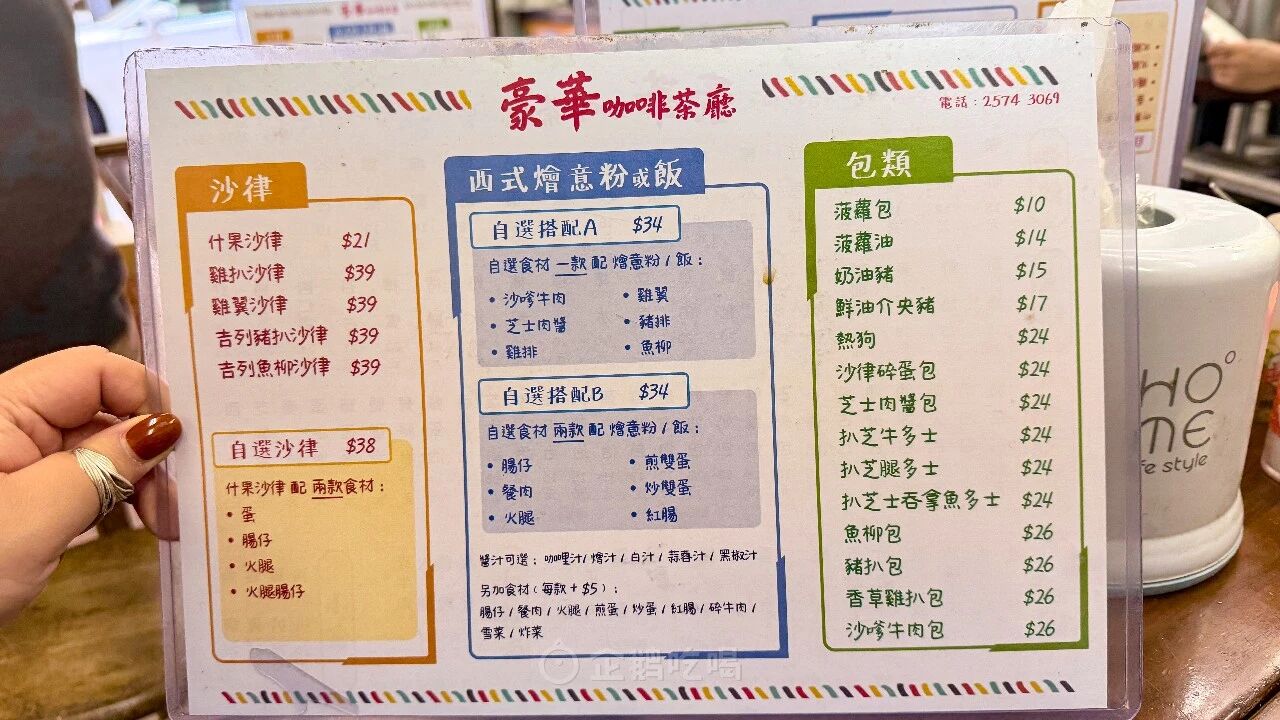 豪華咖啡茶廳
電話：2574 3069
沙律
什果沙律 $21
雞扒沙律 $39
雞翼沙律 $39
吉列豬扒沙律 $39
吉列魚柳沙律 $39
自選沙律 $38
什果沙律 配 兩款食材：
• 蛋
• 腸仔
• 火腿
• 火腿腸仔
西式燴意粉或飯
自選搭配A $34
自選食材 一款 配 燴意粉 / 飯：
• 沙嗲牛肉
• 芝士肉醬
• 雞排
• 雞翼
• 豬排
• 魚柳
自選搭配B $34
自選食材 兩款 配 燴意粉 / 飯：
• 腸仔
• 餐肉
• 火腿
• 煎雙蛋
• 炒雙蛋
• 紅腸
醬汁可選：咖哩汁 / 燴汁 / 白汁 / 蒜蓉汁 / 黑椒汁
另加食材（每款 + $5）：
腸仔 / 餐肉 / 火腿 / 煎蛋 / 炒蛋 / 紅腸 / 碎牛肉 /
雪菜 / 炸菜
包類
菠蘿包 $10
菠蘿油 $14
奶油豬 $15
鮮油介央豬 $17
熱狗 $24
沙律碎蛋包 $24
芝士肉醬包 $24
扒芝牛多士 $24
扒芝腿多士 $24
扒芝士吞拿魚多士 $24
魚柳包 $26
豬扒包 $26
香草雞扒包 $26
沙嗲牛肉包 $26
企鵝吃喝
HO
ME
fe style